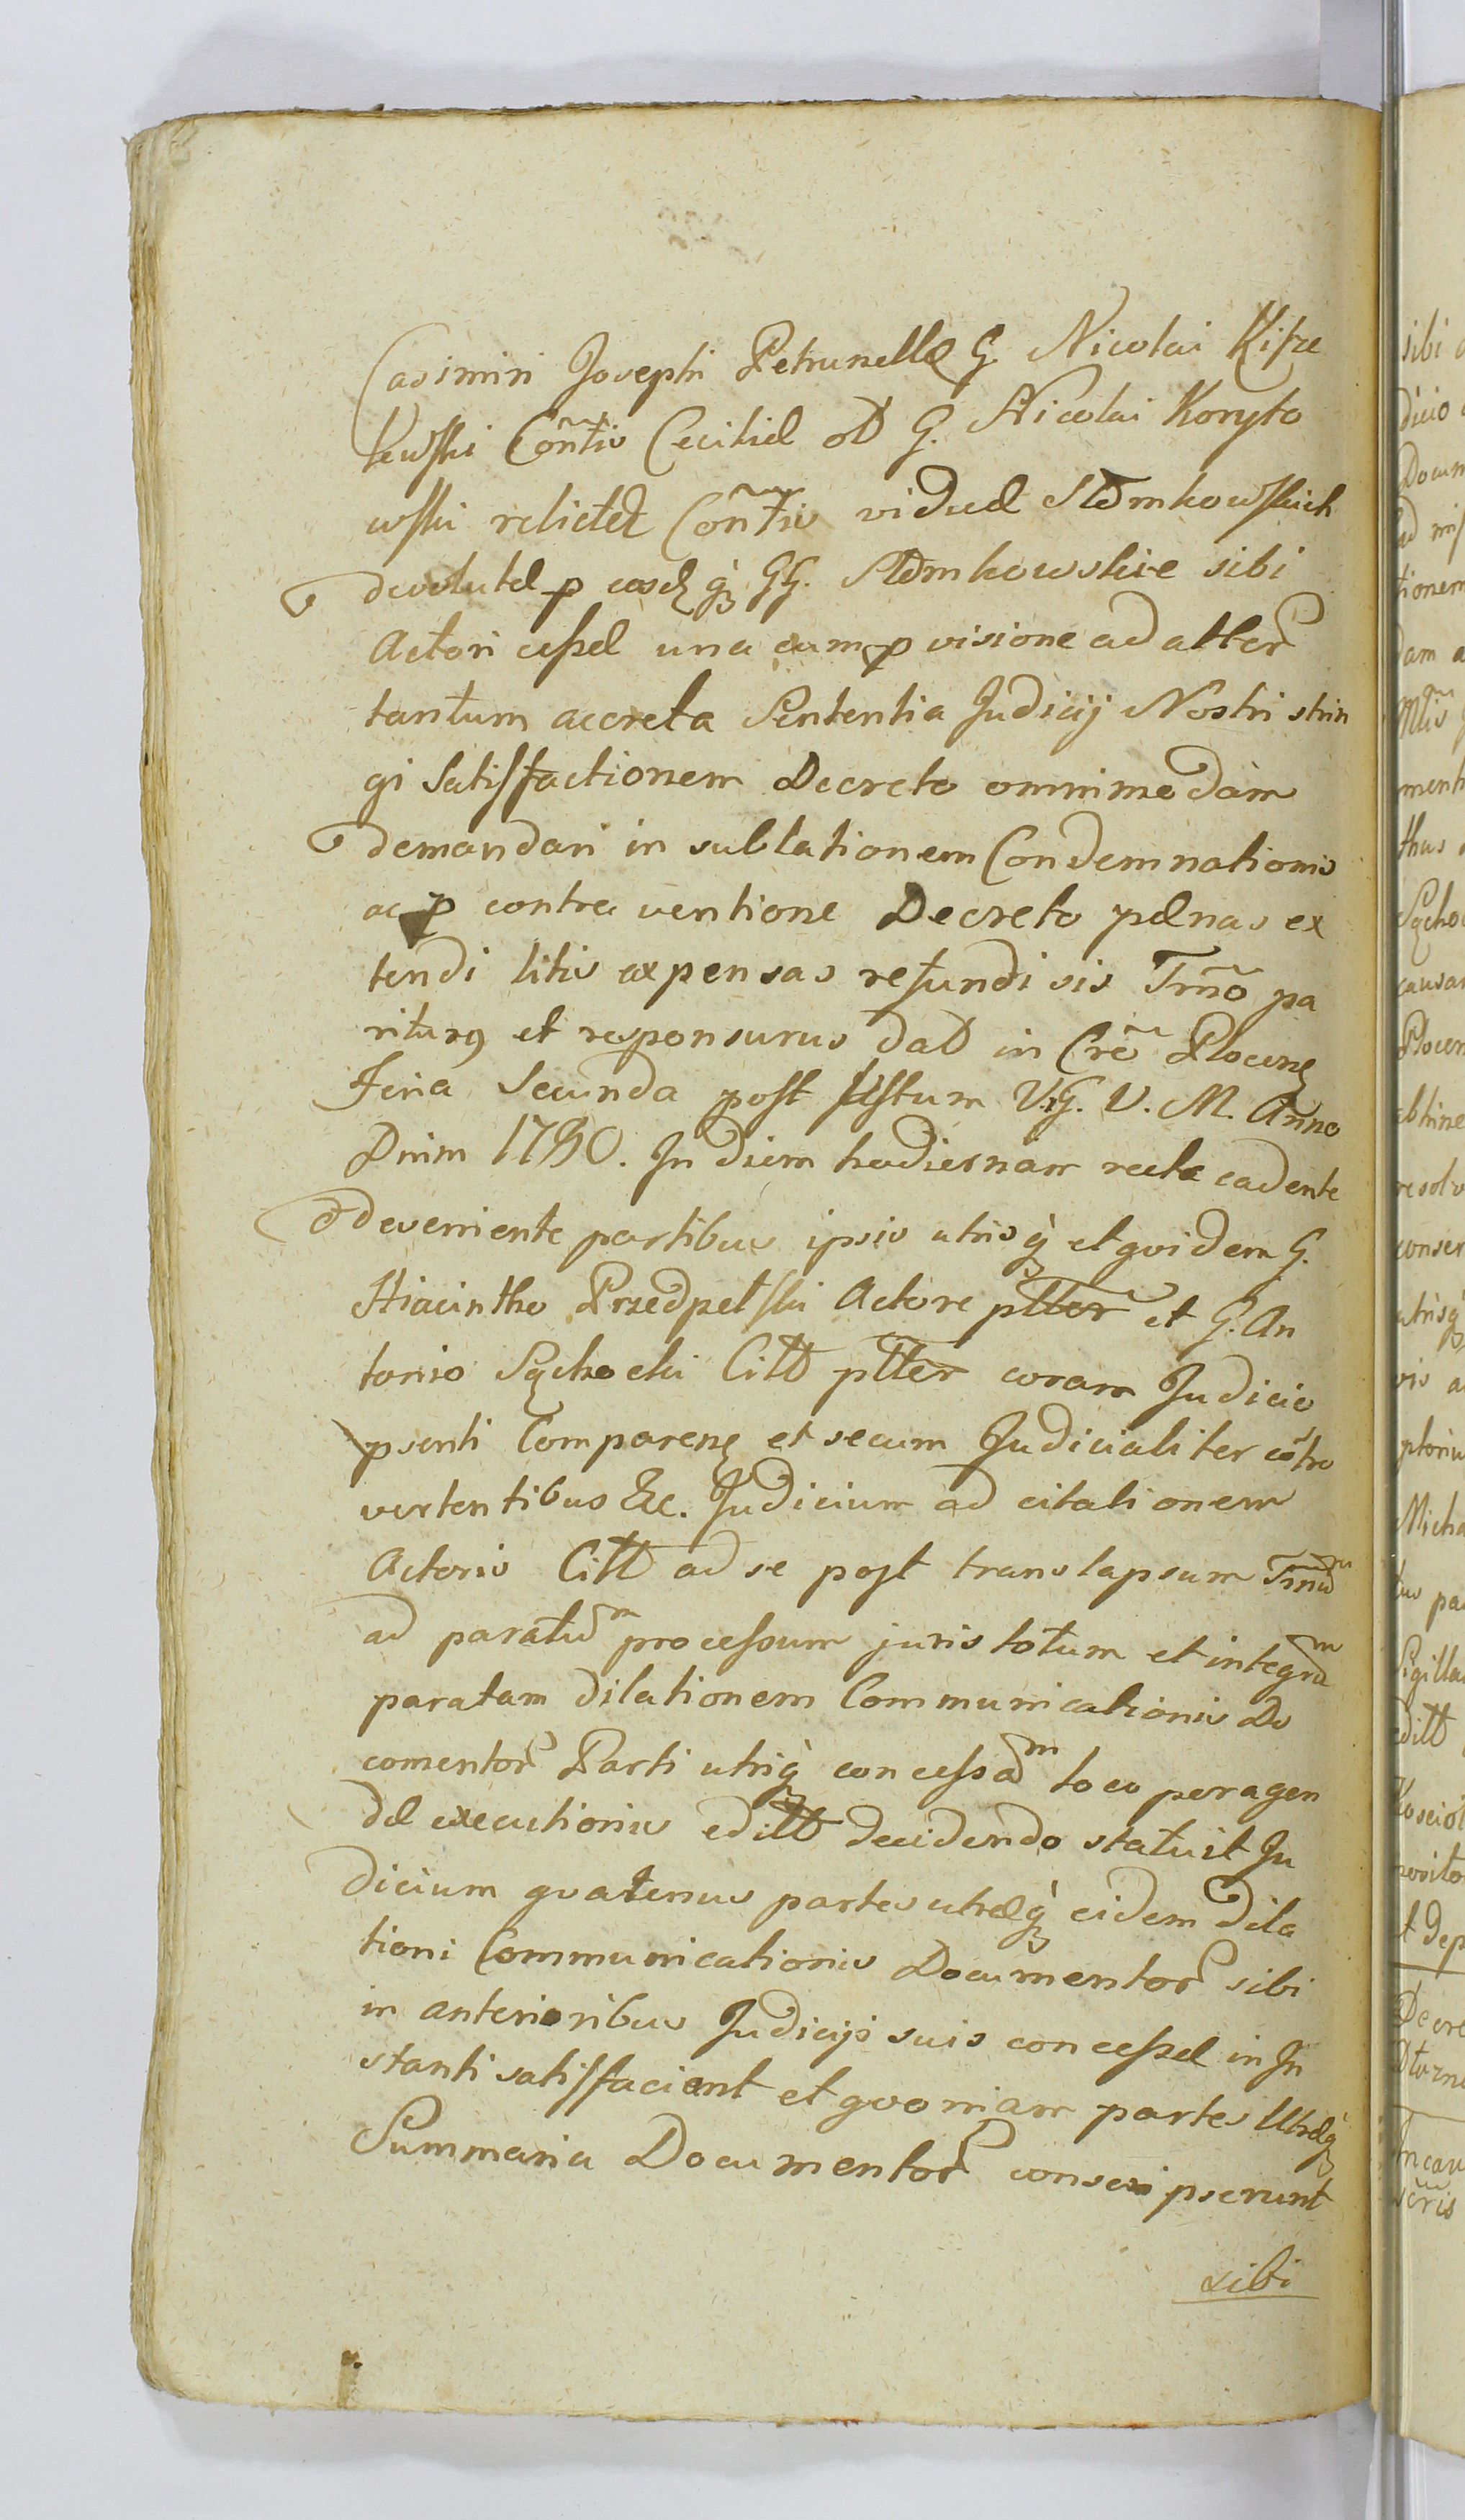 Casimiri Josephi Petrunellæ G. Nicolai Kisze
lewski Con̄tis Ceciliæ olῖ G. Nicolai Koryto
wski relictæ Con̄tis viduæ Słomkowskich
devolutæ p eosd q̀ GG. Słomkowskie sibi
Actori cessæ una cum pvisione ad alter
tantum accreta Sententia Judicij Nostri strin
gi Satisfactionem Decreto omnimodam
demandari in sublationem Condemnationis
ac p contra ventione Decreto pænas ex
tendi litis expensas refundi sis Trn̄o pa
riturg et responsurus dat in Crē Plocen
Feria Secunda post festum V. G. V. M. Anno
Dnim 1780. In diem hodiernam recte cadente
& deveniente partibus ipsis utrisq̀ et qvidem G.
Hiacintho Przedpełski Actore ptter et G. An
tonio Sącho cki Citt ptter coram Judicio
psenti Comparen et secum Judicialiter cōtro
vertentibus &c. Judicium ad citationem
Actoris Citt ad se post translapsum Trnūm
ad paratūm processum juris totum et integrūm
paratam dilationem Communicationis Do
comentor Parti utriq̀ concessām loco peragen
dæ executionis editt decidendo statuit Ju
dicium qvatenus partes utræq̀ eidem dila
tioni Communicationis Documentor sibi
in anterioribus Judicijs suis concessæ in In
stanti satisfacient et qvoniam partes Utræq̀
Summaria Documentor conscripserunt
sibi